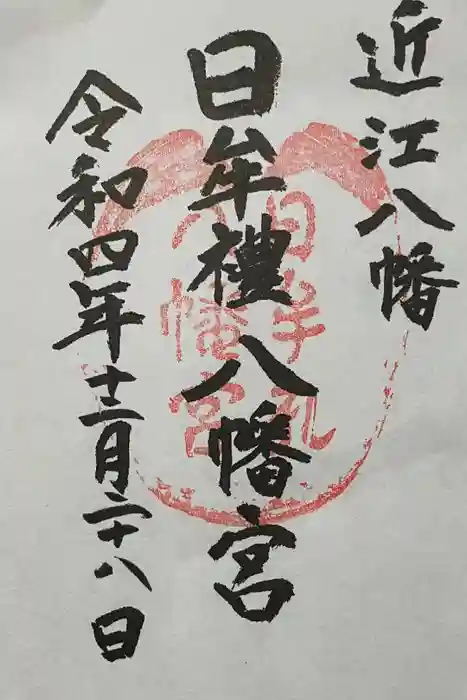 近江八幡
日牟禮八幡宮
日牟礼
八幡宮
令和四年十二月二十八日